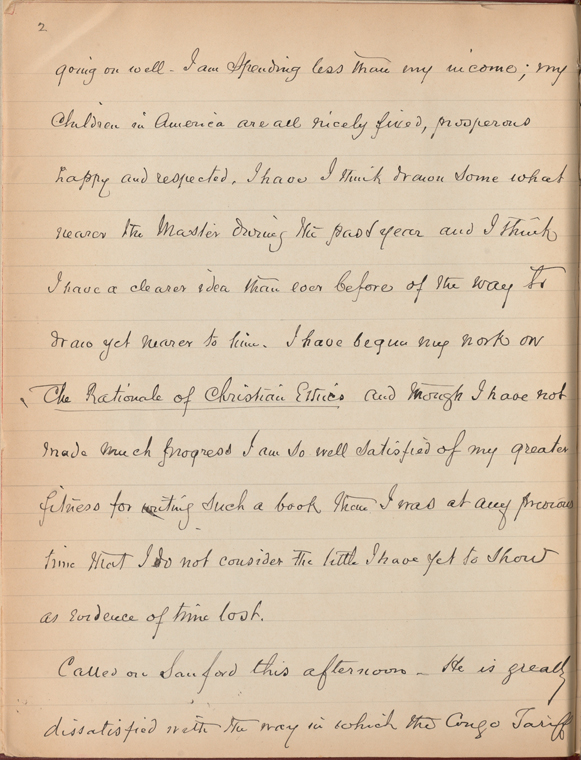 2
going on well - I am spending less than my income; my
Children in America are all nicely fixed, prosperous
happy and respected. I have I think drawn some what
nearer the Master during the past year and I think
I have a clearer idea than ever before of the way to
draw yet nearer to him. I have begun my work on
The Rationale of Christian Ethics and though I have not
made much progress I am so well satisfied of my greater
fitness for writing such a book than I was at any previous
time that I do not consider the little I have yet to show
as evidence of time lost.
Called on Sanford this afternoon - He is greatly
dissatisfied with the way in which the Congo Tariff